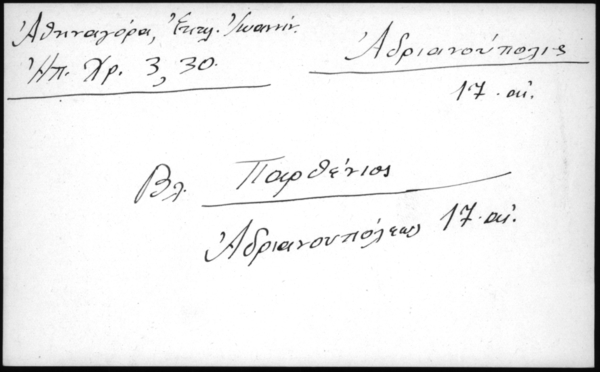 Ἀθηναγόρα, Ἐκκλ. Ἰωανν.
Ἠπ. Χρ. 3, 30.
Ἀδριανούπολις
17. αἰ.
Βλ. Παρθένιος
Ἀδριανουπόλεως 17. αἰ.